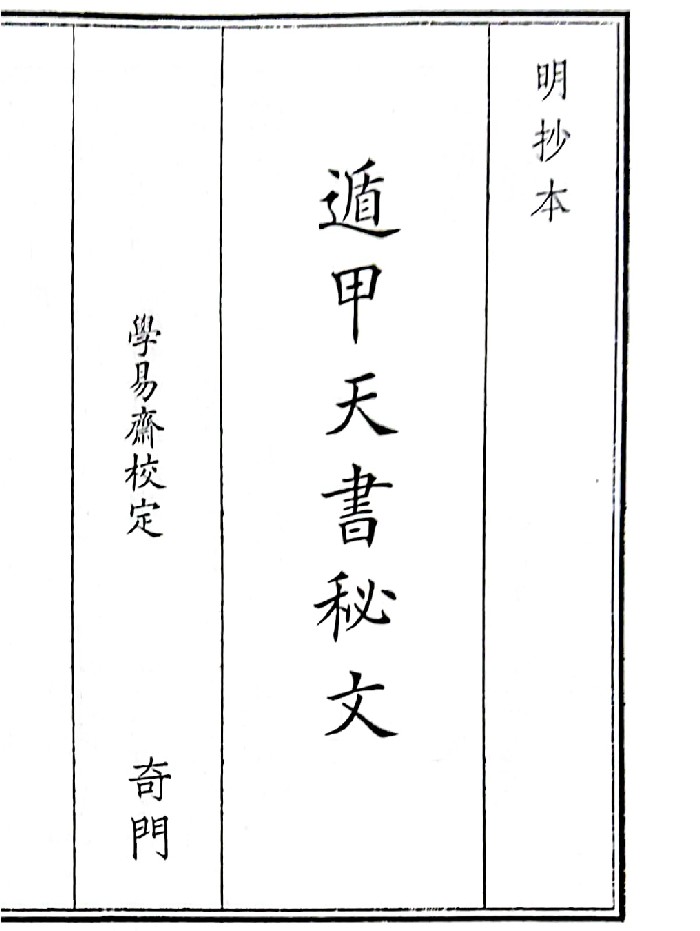 明抄本
遁甲天書秘文
學易齋校定
奇門